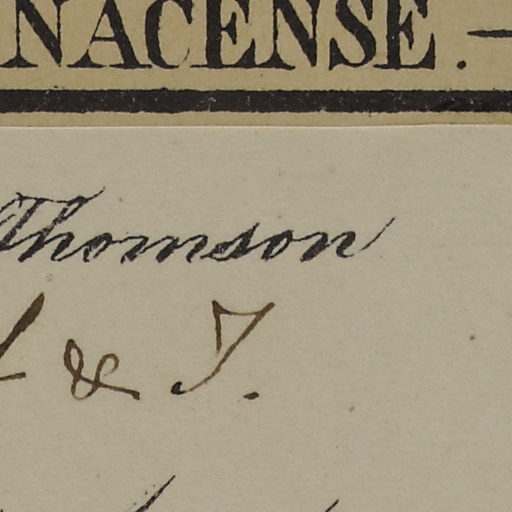 NACENSE. —
Thomson
& T.